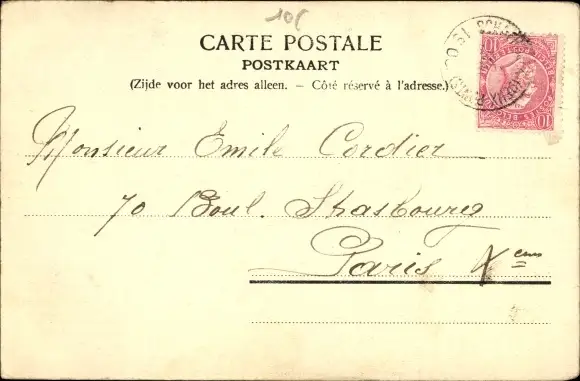 10c
CARTE POSTALE
POSTKAART
(Zijde voor het adres alleen. – Côté réservé à l'adresse.)
10 10
Monsieur Emile Cordier
70 Boul. Strasbourg
Paris Xems